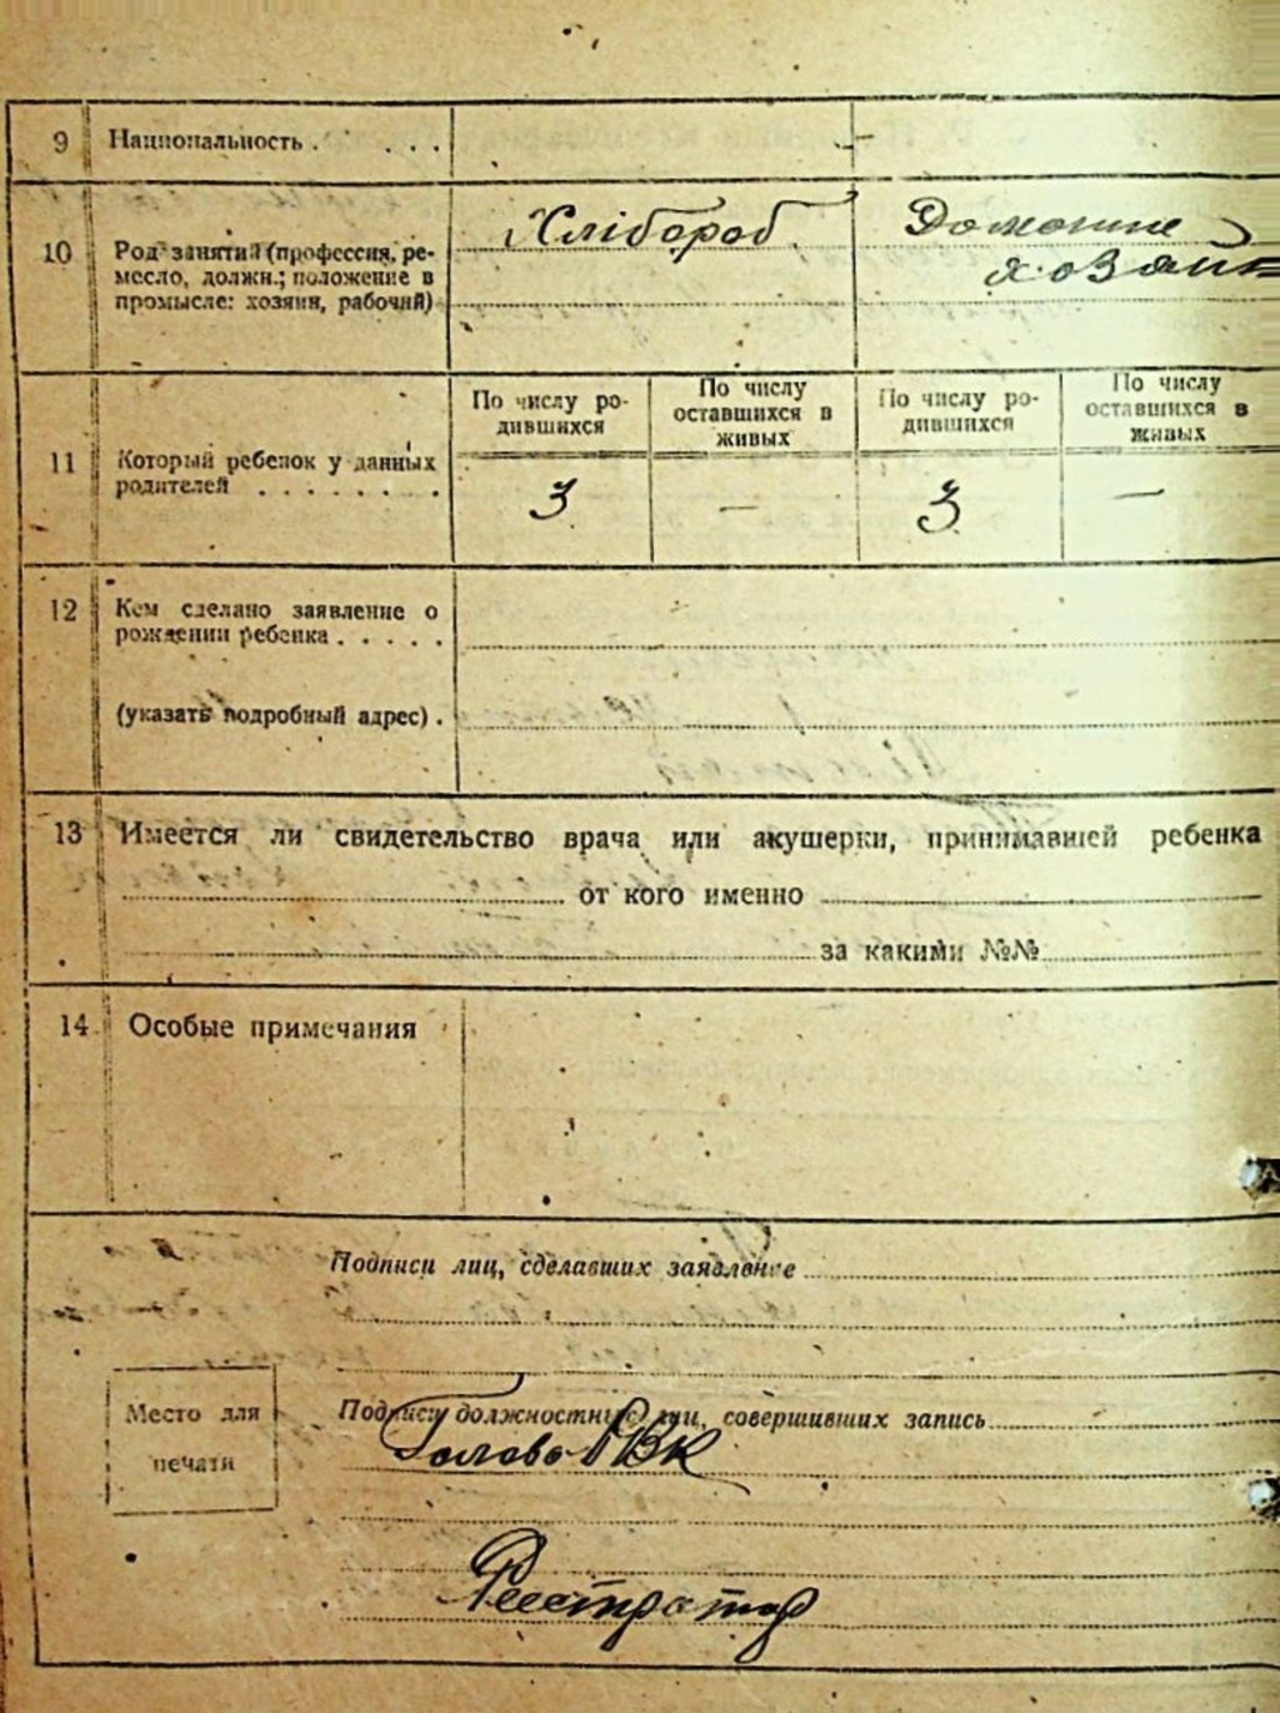 9 Национальность . . . .
10 Род занятий (профессия, ре-
месло, должн.; положение в
промысле: хозяин, рабочий)
Хлібороб
Домашнє
хазяй
11 Который ребенок у данных
родителей . . . . . . .
По числу ро-
дившихся
По числу
оставшихся в
живых
По числу ро-
дившихся
По числу
оставшихся в
живых
3 — 3 —
12 Кем сделано заявление о
рождении ребенка . . . . .
(указать подробный адрес) .
13 Имеется ли свидетельство врача или акушерки, принимавшей ребенка
от кого именно
за какими №№
14 Особые примечания
Подписи лиц, сделавших заявление
Место для
печати
Подписи должностных лиц, совершивших запись
Голова РВК
Реєстратор